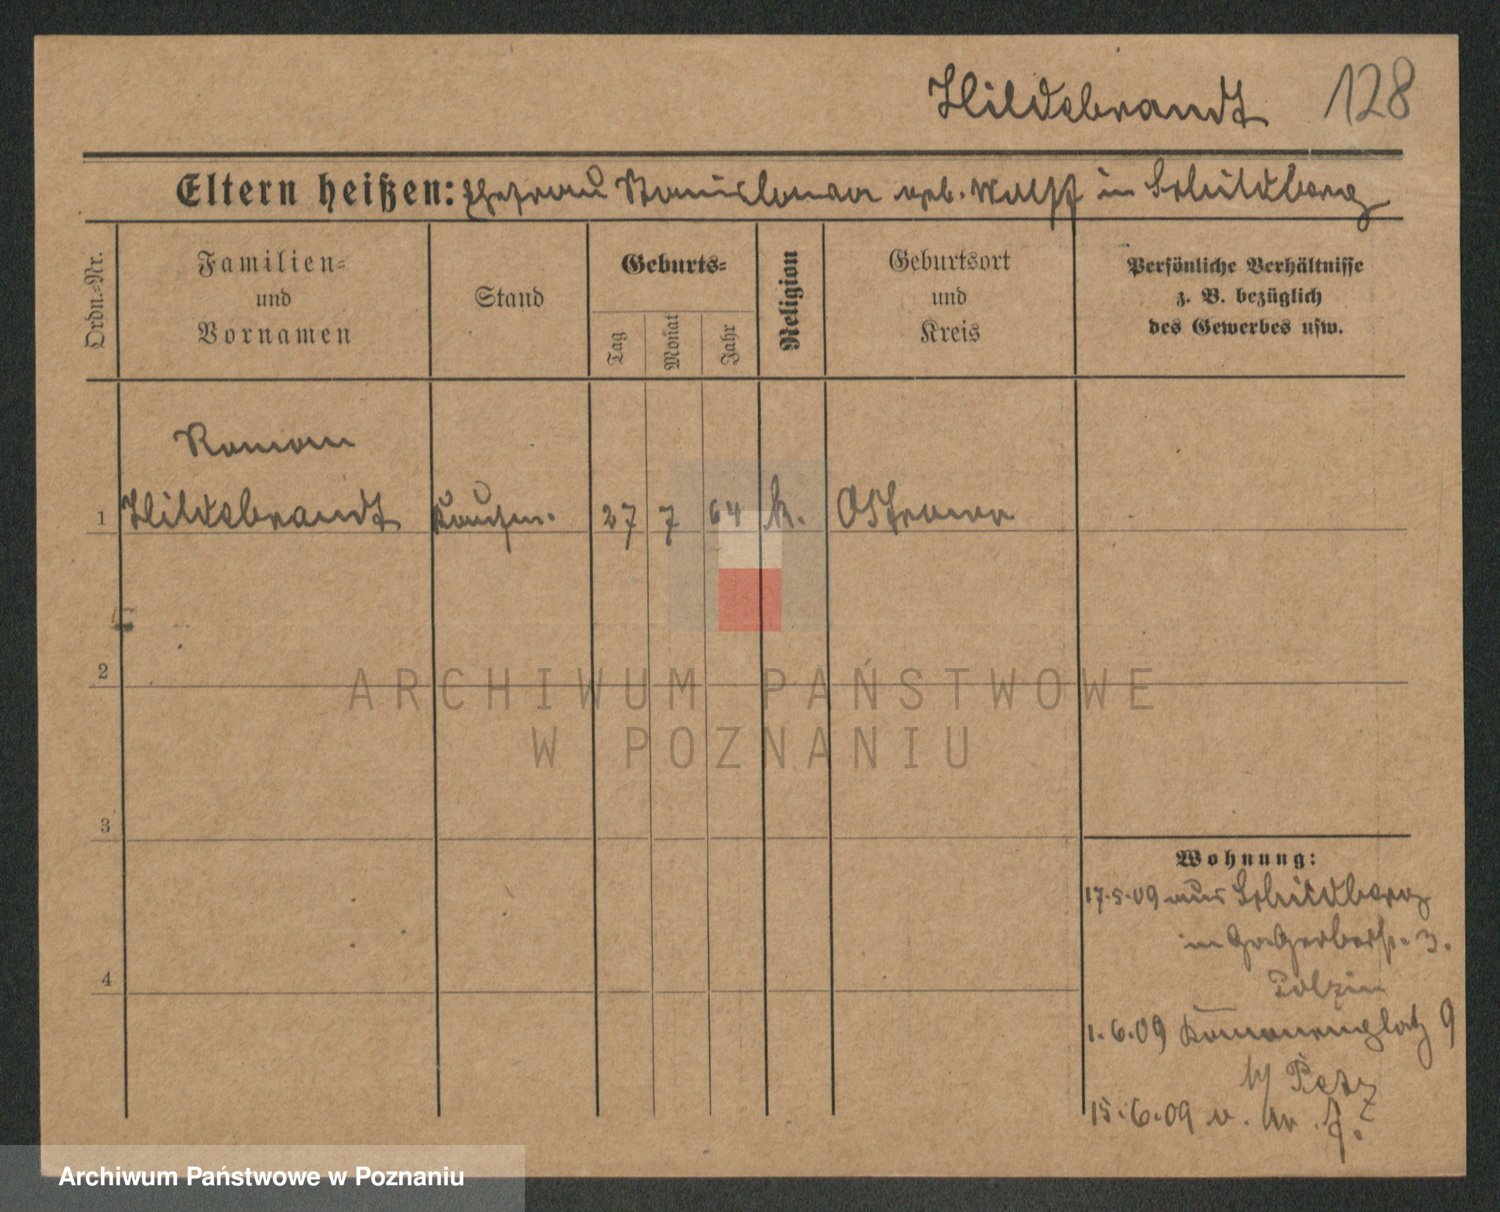 Hildebrandt 128
Eltern heißen: Ehefrau Stanislawa geb. Wolff in Schildberg
Ordn.-Nr.
Familien-
und
Vornamen
Stand
Geburts-
Tag
Monat
Jahr
Religion
Geburtsort
und
Kreis
Persönliche Verhältnisse
z. B. bezüglich
des Gewerbes usw.
Roman
1 Hildebrandt Kaufm. 27 7 64 k. Ostrowo
2
ARCHIWUM PAŃSTWOWE
W POZNANIU
3
Wohnung:
17.5.09 aus Schildberg
in Gr. Gerberstr. 3.
4
1.6.09 9
15.6.09
Archiwum Państwowe w Poznaniu